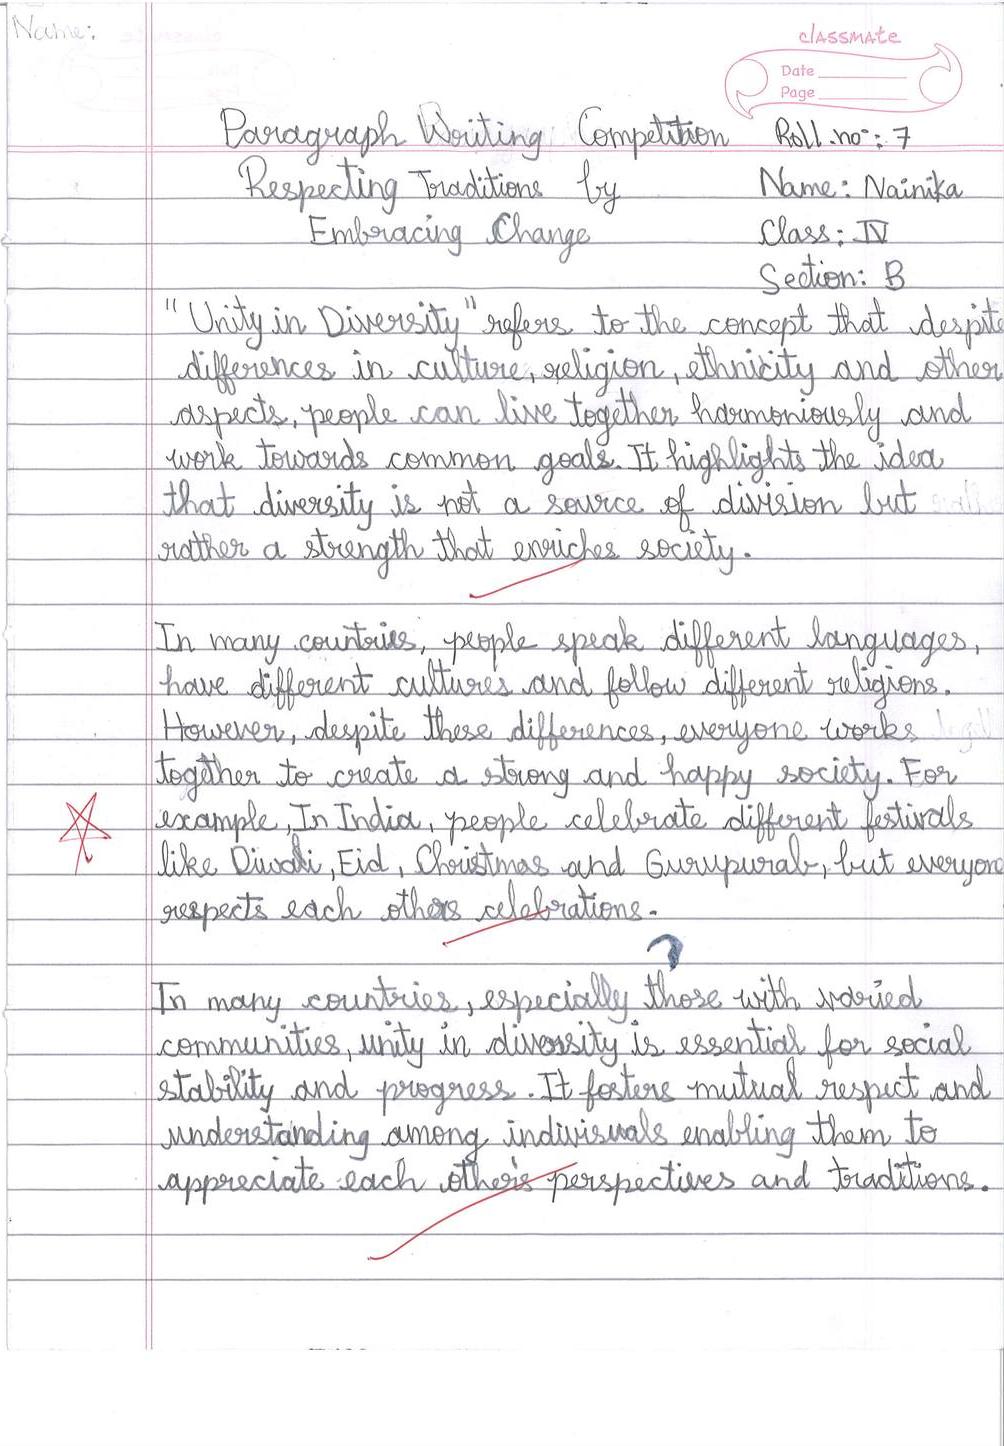 Name:
classmate
Date
Page
Paragraph Writing Competition Roll.no-: 7
Respecting Traditions by Name: Nainika
Embracing Change Class: IV
Section: B
"Unity in Diversity" refers to the concept that despite
differences in culture, religion, ethnicity and other
aspects, people can live together harmoniously and
work towards common goals. It highlights the idea
that diversity is not a source of division but
rather a strength that enriches society.
In many countries, people speak different languages,
have different cultures and follow different religions.
However, despite these differences, everyone works
together to create a strong and happy society. For
example, In India, people celebrate different festivals
like Diwali, Eid, Christmas and Gurupurab, but everyone
respects each others celebrations.
In many countries, especially those with varied
communities, unity in diversity is essential for social
stability and progress. It fosters mutual respect and
understanding among indivisuals enabling them to
appreciate each other's perspectives and traditions.